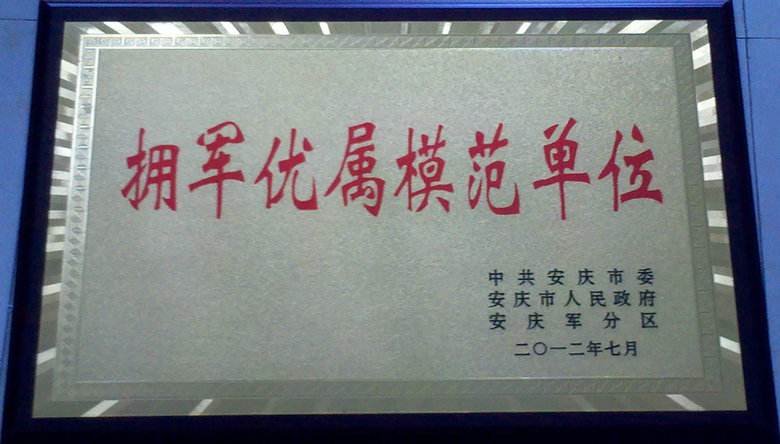 拥军优属模范单位
中共安庆市委
安庆市人民政府
安庆军分区
二〇一二年七月